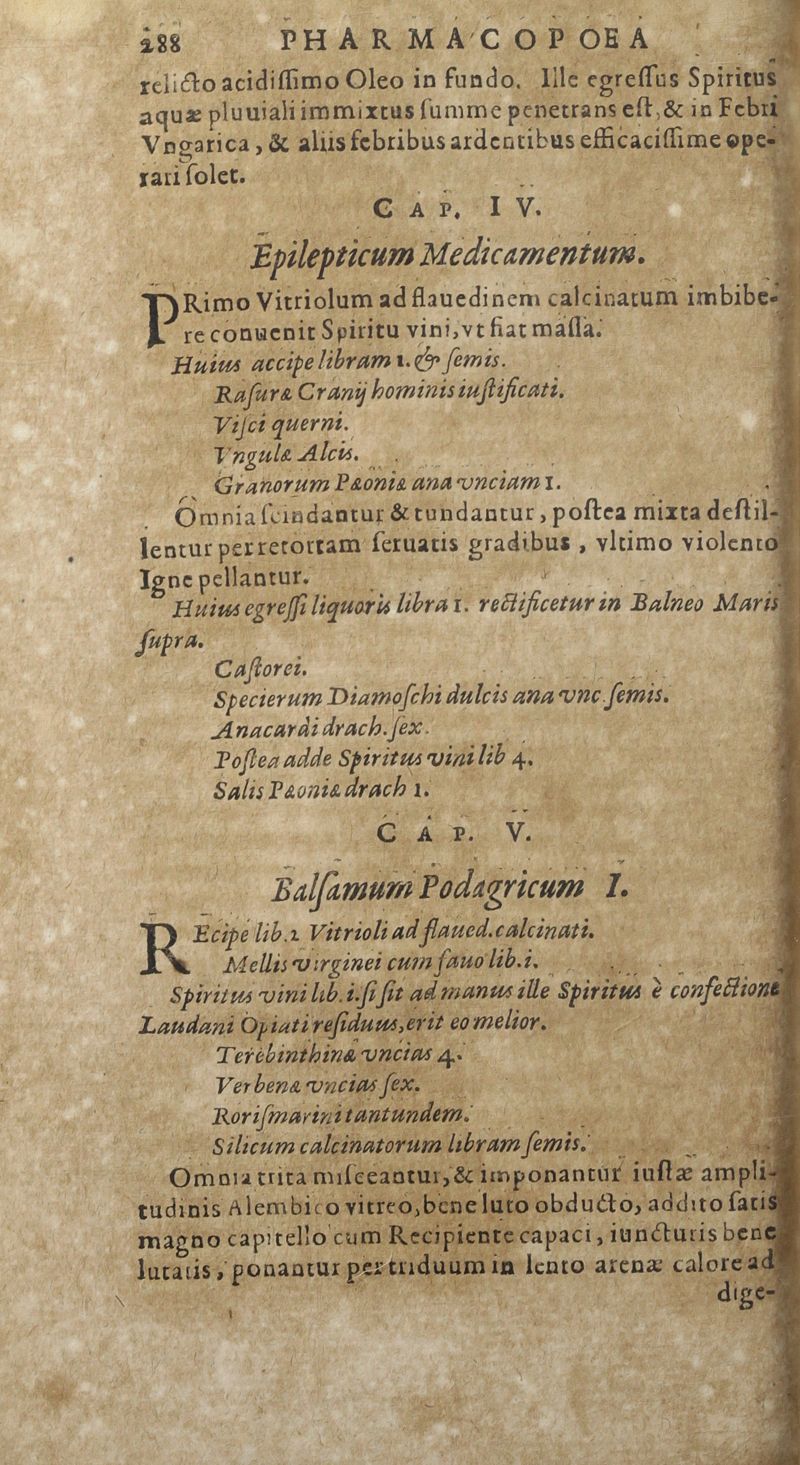 288 PHARMACOPOEA
relicto acidiſſimo Oleo in fundo. Ille egreſſus Spiritus
aquæ pluuiali immixtus ſumme penetrans eſt, & in Febri
Vngarica, & aliis febribus ardentibus efficaciſſime ope-
rari ſolet.
CAP. IV.
Epilepticum Medicamentum.
PRimo Vitriolum ad flauedinem calcinatum imbibe-
re conuenit Spiritu vini, vt fiat maſſa.
Huius accipe libram 1. & ſemis.
Raſuræ Cranij hominis iuſtificati.
Viſci querni.
Vngulæ Alcis.
Granorum Pæoniæ ana vnciam 1.
Omnia ſcindantur & tundantur, poſtea mixta deſtil-
lentur per retortam ſeruatis gradibus, vltimo violento
Igne pellantur.
Huius egreſſi liquoris libra 1. rectificetur in Balneo Maris
ſupra.
Caſtorei.
Specierum Diamoſchi dulcis ana vnc ſemis.
Anacardi drach. ſex.
Poſtea adde Spiritus vini lib 4.
Salis Pæoniæ drach 1.
CAP. V.
Balſamum Podagricum I.
REcipe lib. 1 Vitrioli ad flaued. calcinati.
Mellis virginei cum fauo lib. i.
Spiritus vini lib. i. ſi ſit ad manus ille Spiritus è confectione
Laudani Opiati reſiduus, erit eo melior.
Terebinthinæ vncias 4.
Verbenæ vncias ſex.
Roriſmarini tantundem.
Silicum calcinatorum libram ſemis.
Omnia trita miſceantur, & imponantur iuſtæ ampli-
tudinis Alembico vitreo, bene luto obducto, addito ſatis
magno capitello cum Recipiente capaci, iuncturis bene
lutatis, ponantur per triduum in lento arenæ calore ad
dige-